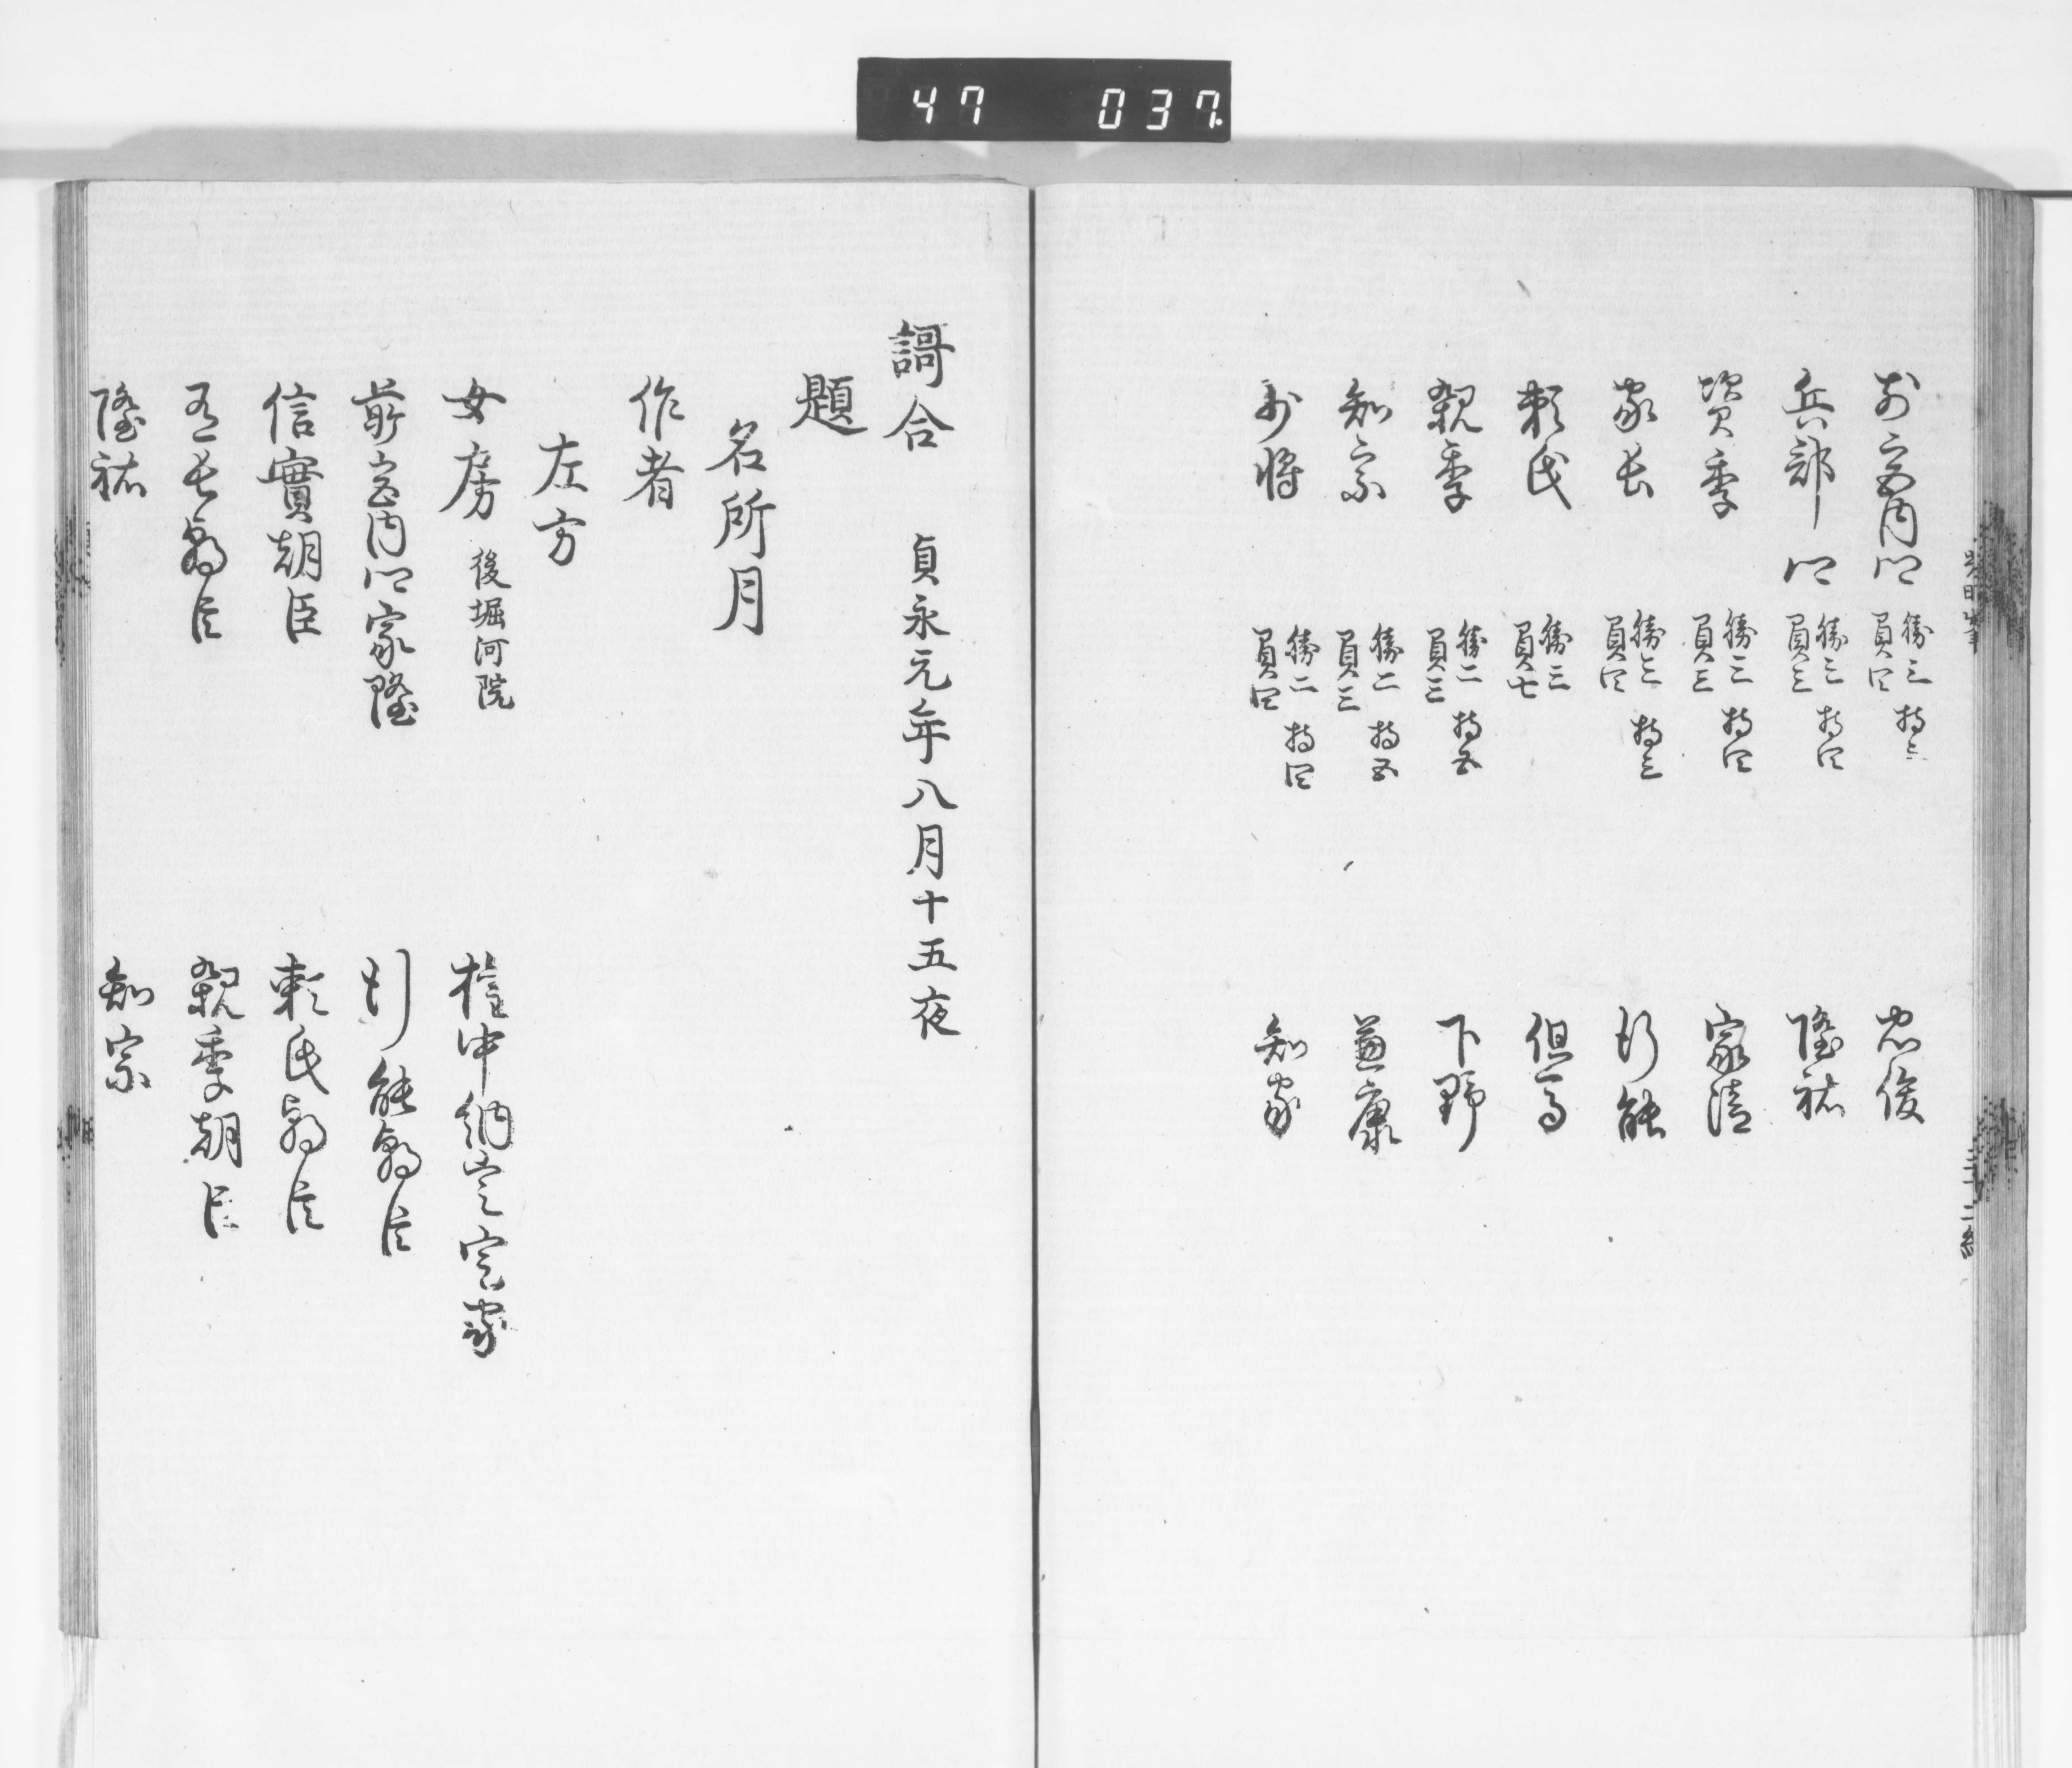 47 037
前宮内卿 勝三 持三 負四 忠俊
兵部卿 勝三 持四 負三 隆祐
資季 勝三 持四 負三 家清
家長 勝三 持三 負四 行能
頼氏 勝三 負七 但馬
親季 勝二 持五 負三 下野
知宗 勝二 持五 負三 兼康
少将 勝二 持四 負四 知家
謌合 貞永元年八月十五夜
題
名所月
作者
左方
女房 後堀河院 権中納言定家
前宮内卿家隆 行能朝臣
信實朝臣 頼氏朝臣
有長朝臣 親季朝臣
隆祐 知宗